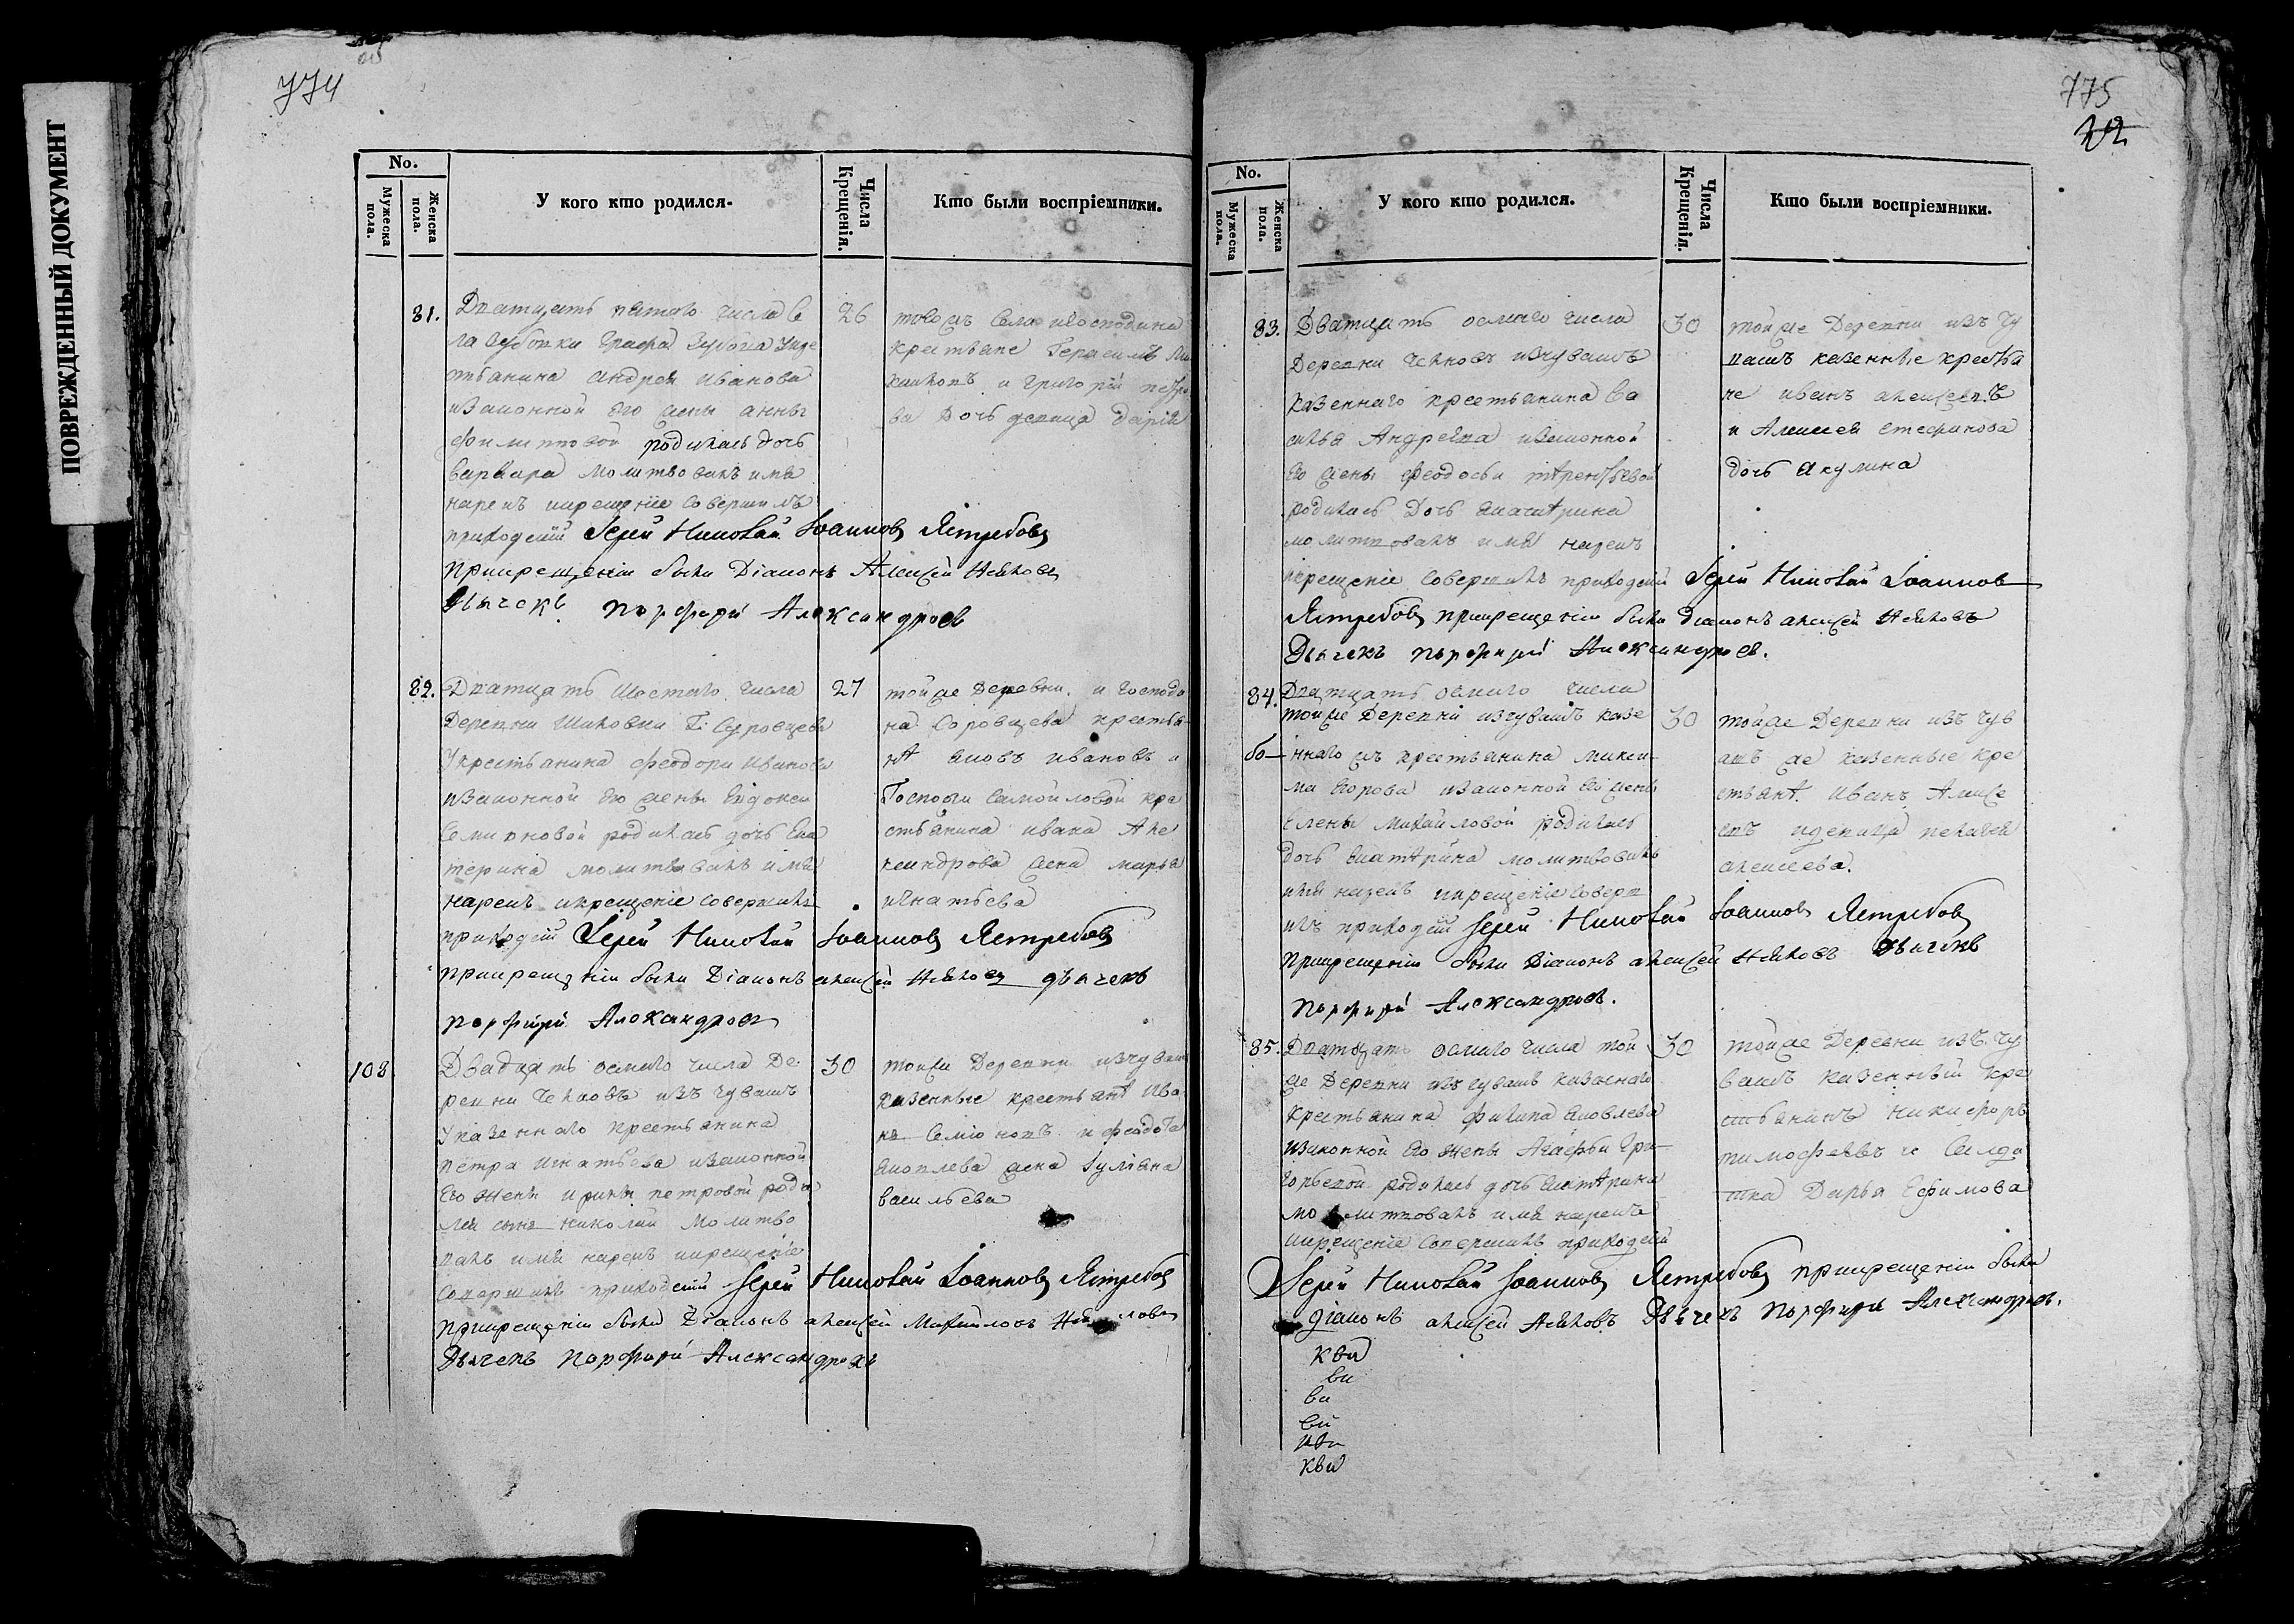 ПОВРЕЖДЕННЫЙ ДОКУМЕНТ
774
No.
Мужеска пола.
Женска пола.
У кого кто родился.
Числа Крещенія.
Кто были воспріемники.
81.
Дватцать пятаго числа Се
ла Зубовки Графа Зубова у кре
стьянина андрея иванова
изаконной его жены анны
филиповой родилась дочь
варвара молитвовалъ имя
нарекъ икрещеніе совершилъ
приходскій Іерей Николай Іоанновъ Ястребовъ
прикрещеніи были Діаконъ Алексѣй
Дьячекъ Порфирій Александровъ
26
тогожъ Села игосподина
крестьяне Герасимъ Ми
хаиловъ и григорій петро
ва дочь девица дарія
82.
Дватцать шестаго числа
Деревни Г:
Укрестьянина феодора иванова
изаконной его жены Евдокеи
Семионовой родилась дочь Ека
терина молитвовалъ имя
нарекъ икрещеніе совершилъ
приходскій Іерей Николай Іоанновъ Ястребовъ
прикрещеніи были Діаконъ алексѣй дьячекъ
порфирій Александровъ
27
тойже Деревни и Господи
на крестья
иковъ ивановъ и
Госпожи Самойловой кре
стьянина ивана Але
ксандрова жена марья
игнатьева
108
Двадцать осмаго числа Де
ревни изъ чувашъ
Указеннаго крестьянина
петра игнатьева изаконной
его жены ирины петровой роди
лся сынъ николай молитво
валъ имя нарекъ икрещеніе
совершилъ приходскій Іерей Николай Іоанновъ Ястребовъ
прикрещеніи были Діаконъ алексѣй Михайловъ
Дьячекъ Порфирій Александровъ
30
тойже Деревни изчуваш
казенные крестьянѣ Ива
нъ Семіоновъ и феодота
яковлева жена Іуліяна
васильева
775
22
No.
Мужеска пола.
Женска пола.
У кого кто родился.
Числа Крещенія.
Кто были воспріемники.
83.
Дватцать осмаго числа
Деревни изчувашъ
казеннаго крестьянина Ва
силья Андреева изаконной
его жены феодосьи терентьевой
родилась дочь екатѣрина
молитвовалъ имя нарекъ
крещеніе совершилъ приходскій Іерей Николай Іоанновъ
Ястребовъ прикрещеніи были діаконъ алексѣй
Дьячекъ Порфирій Александровъ.
30
тойже Деревни изъ чу
вашъ казенные кресть
не иванъ алексеевъ
и Алексея стефанова
дочь акулина
84.
Дватцать осмаго числа
тойже Деревни изчувашъ казе
ннагожъ крестьянина макси
ма Егорова изаконной его жены
Елены михайловой родилась
дочь екатѣрина молитвовалъ
имя нарекъ икрещеніе соверш
илъ приходскій Іерей Николай Іоанновъ Ястребовъ
прикрещеніи были Діаконъ алексѣй дьячекъ
Порфирій Александровъ.
30
тойже Деревни изъ чув
ашъ же казенные кре
стьянѣ Иванъ Алексе
евъ идевица пелагея
алексеева.
85.
Дватцать осмаго числа той
же Деревни изъ чувашъ казеннаго
крестьянина филипа яковлева
изаконной его жены Агафьи Гри
горьевой родилась дочь екатѣрина
молитвовалъ имя нарекъ
икрещеніе совершилъ приходскій
Іерей Николай Іоанновъ Ястребовъ прикрещеніи были
діаконъ алексѣй Дьячекъ Порфирій Александровъ.
30
тойже Деревни изъ чу
вашъ казенный кре
стьянинъ никифоръ
тимофеевъ и Салда
тка Дарья Ефимова